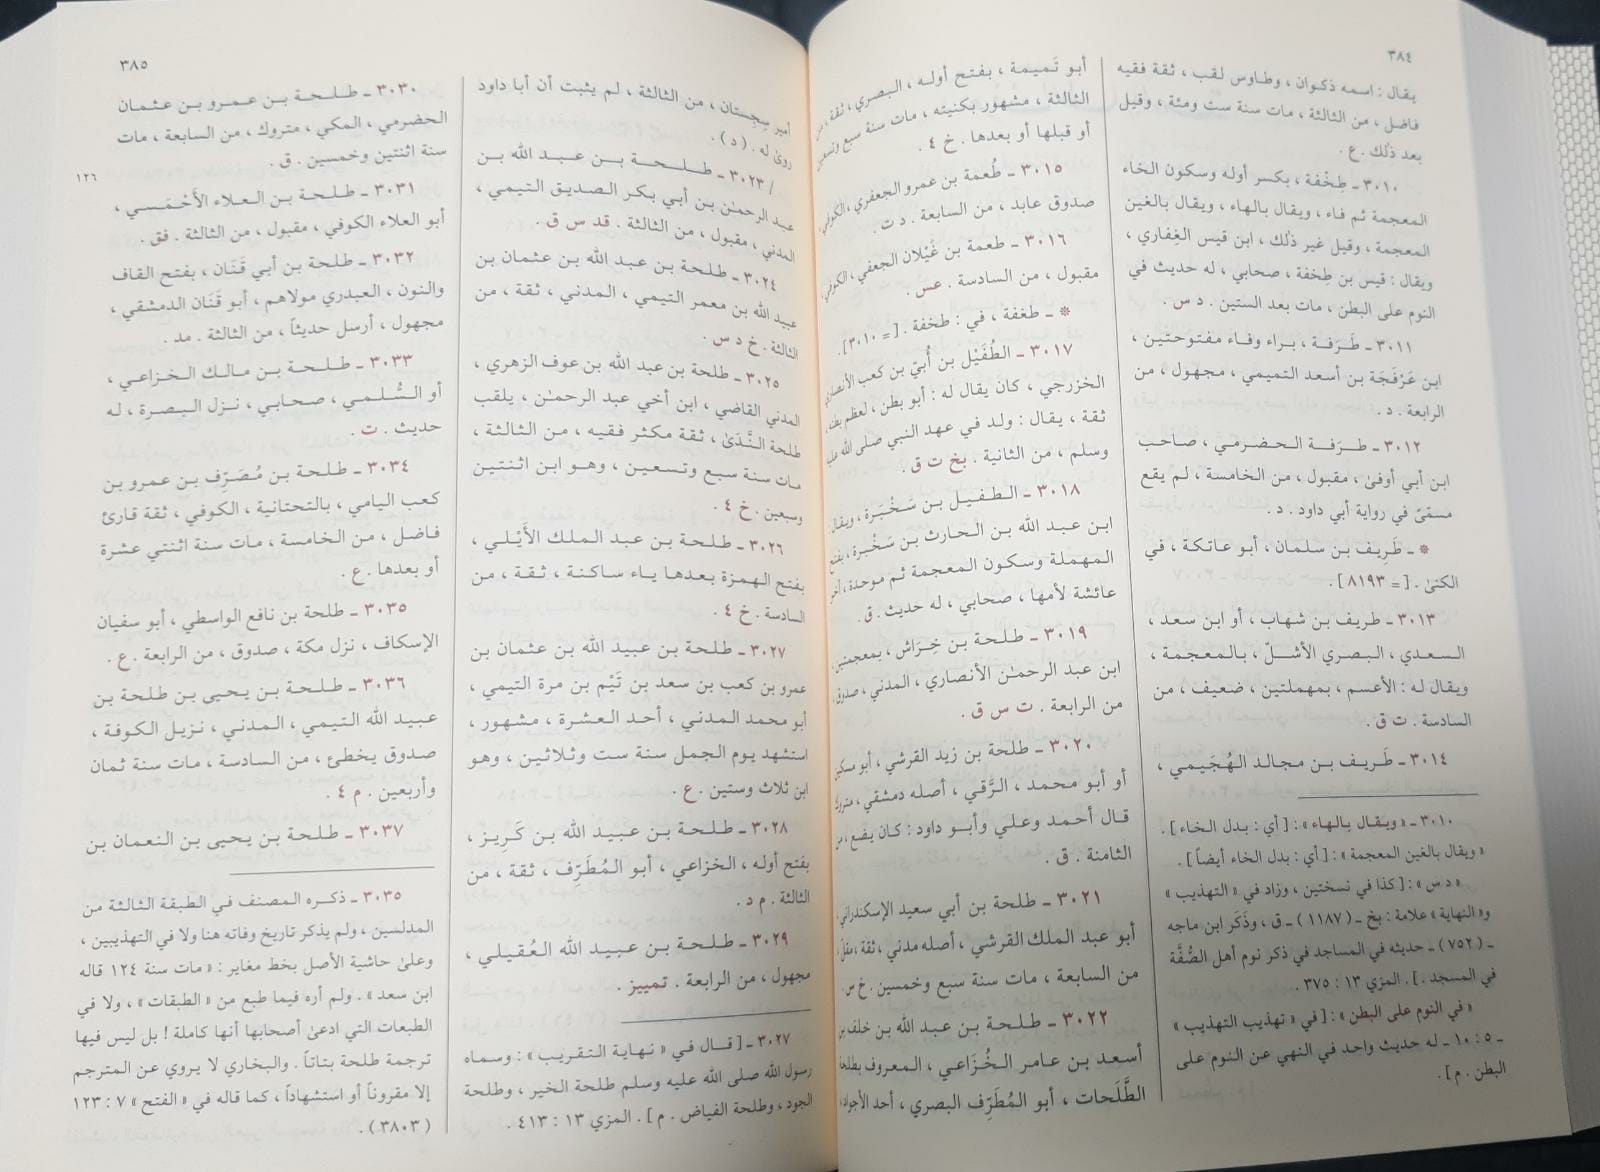 ٣٨٤
يقال : اسمه ذكوان ، وطاوس لقب ، ثقة فقيه
فاضل ، من الثالثة ، مات سنة ست ومئة ، وقيل
بعد ذلك . ع .
٣٠١٠ ـ طِخْفة ، بكسر أوله وسكون الخاء
المعجمة ثم فاء ، ويقال بالهاء ، ويقال بالغين
المعجمة ، وقيل غير ذلك ، ابن قيس الغِفاري ،
ويقال : قيس بن طِخفة ، صحابي ، له حديث في
النوم على البطن ، مات بعد الستين . د س .
٣٠١١ ـ طَرَفة ، براء وفاء مفتوحتين ،
ابن عَرْفَجَة بن أسعد التميمي ، مجهول ، من
الرابعة . د .
٣٠١٢ ـ طرفة الحضرمي ، صاحب
ابن أبي أوفىٰ ، مقبول ، من الخامسة ، لم يقع
مسمّىً في رواية أبي داود . د .
* ـ طَرِيف بن سلمان ، أبو عاتكة ، في
الكنىٰ . [= ٨١٩٣] .
٣٠١٣ ـ طريف بن شهاب ، أو ابن سعد ،
السعدي ، البصري الأشلّ ، بالمعجمة ،
ويقال له : الأعسم ، بمهملتين ، ضعيف ، من
السادسة . ت ق .
٣٠١٤ ـ طَرِيف بن مجالد الهُجَيمي ،
٣٠١٠ ـ « ويقال بالهاء » : [ أي : بدل الخاء ] .
« ويقال بالغين المعجمة » : [ أي : بدل الخاء أيضاً ] .
« د س » : [ كذا في نسختين ، وزاد في « التهذيب »
و« النهاية » علامة : بخ ـ (١١٨٧) ـ ق ، وذَكَر ابن ماجه
ـ (٧٥٢) ـ حديثه في المساجد في ذكر نوم أهل الصُّفَّة
في المسجد . ] . المزي ١٣ : ٣٧٥ .
« في النوم على البطن » : [ في « تهذيب التهذيب »
ـ ٥ : ١٠ ـ له حديث واحد في النهي عن النوم على
البطن . م ] .
أبو تَميمة ، بفتح أوله ، البصري ، ثقة ، من
الثالثة ، مشهور بكنيته ، مات سنة سبع وتسعين
أو قبلها أو بعدها . خ ٤ .
٣٠١٥ ـ طُعمة بن عمرو الجعفري ، الكوفي ،
صدوق عابد ، من السابعة . د ت .
٣٠١٦ ـ طعمة بن غَيْلان الجعفي ، الكوفي ،
مقبول ، من السادسة . عس .
* ـ طغفة ، في : طخفة . [= ٣٠١٠] .
٣٠١٧ ـ الطُفَيْل بن أُبيّ بن كعب الأنصاري
الخزرجي ، كان يقال له : أبو بطن ، لعظم بطنه ،
ثقة ، يقال : ولد في عهد النبي صلى الله عليه
وسلم ، من الثانية . بخ ت ق .
٣٠١٨ ـ الطفيل بن سَخْبَرة ، ويقال :
ابن عبد الله بن الحارث بن سَخْبرة ، بفتح
المهملة وسكون المعجمة ثم موحدة ، أخو
عائشة لأمها ، صحابي ، له حديث . ق .
٣٠١٩ ـ طلحة بن خِرَاش ، بمعجمتين ،
ابن عبد الرحمٰن الأنصاري ، المدني ، صدوق ،
من الرابعة . ت س ق .
٣٠٢٠ ـ طلحة بن زيد القرشي ، أبو مسكين
أو أبو محمد ، الرَّقي ، أصله دمشقي ، متروك
قال أحمد وعلي وأبو داود : كان يضع ، من
الثامنة . ق .
٣٠٢١ ـ طلحة بن أبي سعيد الإسكندراني ،
أبو عبد الملك القرشي ، أصله مدني ، ثقة ، مقلّ
من السابعة ، مات سنة سبع وخمسين . خ س .
٣٠٢٢ ـ طلحة بن عبد الله بن خلف بن
أسعد بن عامر الخُزَاعي ، المعروف بطلحة
الطَّلَحات ، أبو المُطَرِّف البصري ، أحد الأجواد ،
٣٨٥
أمير سِجِستان ، من الثالثة ، لم يثبت أن أبا داود
روىٰ له . ( د ) .
/ ٣٠٢٣ ـ طلحة بن عبد الله بن
عبد الرحمٰن بن أبي بكر الصديق التيمي ،
المدني ، مقبول ، من الثالثة . قد س ق .
٣٠٢٤ ـ طلحة بن عبد الله بن عثمان بن
عبيد الله بن معمر التيمي ، المدني ، ثقة ، من
الثالثة . خ د س .
٣٠٢٥ ـ طلحة بن عبد الله بن عوف الزهري ،
المدني القاضي ، ابن أخي عبد الرحمٰن ، يلقب
طلحة النَّدَىٰ ، ثقة مكثر فقيه ، من الثالثة ،
مات سنة سبع وتسعين ، وهو ابن اثنتين
وسبعين . خ ٤ .
٣٠٢٦ ـ طلحة بن عبد الملك الأَيْلي ،
بفتح الهمزة بعدها ياء ساكنة ، ثقة ، من
السادسة . خ ٤ .
٣٠٢٧ ـ طلحة بن عبيد الله بن عثمان بن
عمرو بن كعب بن سعد بن تَيْم بن مرة التيمي ،
أبو محمد المدني ، أحد العشرة ، مشهور ،
استشهد يوم الجمل سنة ست وثلاثين ، وهو
ابن ثلاث وستين . ع .
٣٠٢٨ ـ طلحة بن عبيد الله بن كَرِيز ،
بفتح أوله ، الخزاعي ، أبو المُطَرِّف ، ثقة ، من
الثالثة . م د .
٣٠٢٩ ـ طلحة بن عبيد الله العُقيلي ،
مجهول ، من الرابعة . تمييز .
٣٠٢٧ ـ [ قال في « نهاية التقريب » : وسماه
رسول الله صلى الله عليه وسلم طلحة الخير ، وطلحة
الجود ، وطلحة الفياض . م ] . المزي ١٣ : ٤١٣ .
٣٠٣٠ ـ طلحة بن عمرو بن عثمان
الحضرمي ، المكي ، متروك ، من السابعة ، مات
سنة اثنتين وخمسين . ق .
١٢٦
٣٠٣١ ـ طلحة بن العلاء الأَحْمَسي ،
أبو العلاء الكوفي ، مقبول ، من الثالثة . فق .
٣٠٣٢ ـ طلحة بن أبي قَنَان ، بفتح القاف
والنون ، العبدري مولاهم ، أبو قَنَان الدمشقي ،
مجهول ، أرسل حديثاً ، من الثالثة . مد .
٣٠٣٣ ـ طلحة بن مالك الخزاعي ،
أو السُّلمي ، صحابي ، نزل البصرة ، له
حديث . ت .
٣٠٣٤ ـ طلحة بن مُصَرِّف بن عمرو بن
كعب اليامي ، بالتحتانية ، الكوفي ، ثقة قارئ
فاضل ، من الخامسة ، مات سنة اثنتي عشرة
أو بعدها . ع .
٣٠٣٥ ـ طلحة بن نافع الواسطي ، أبو سفيان
الإسكاف ، نزل مكة ، صدوق ، من الرابعة . ع .
٣٠٣٦ ـ طلحة بن يحيى بن طلحة بن
عبيد الله التيمي ، المدني ، نزيل الكوفة ،
صدوق يخطئ ، من السادسة ، مات سنة ثمان
وأربعين . م ٤ .
٣٠٣٧ ـ طلحة بن يحيى بن النعمان بن
٣٠٣٥ ـ ذكره المصنف في الطبقة الثالثة من
المدلسين ، ولم يذكر تاريخ وفاته هنا ولا في التهذيبين ،
وعلىٰ حاشية الأصل بخط مغاير : « مات سنة ١٢٤ قاله
ابن سعد » . ولم أره فيما طبع من « الطبقات » ، ولا في
الطبعات التي ادعىٰ أصحابها أنها كاملة ! بل ليس فيها
ترجمة طلحة بتاتاً . والبخاري لا يروي عن المترجم
إلا مقروناً أو استشهاداً ، كما قاله في « الفتح » ٧ : ١٢٣
(٣٨٠٣) .